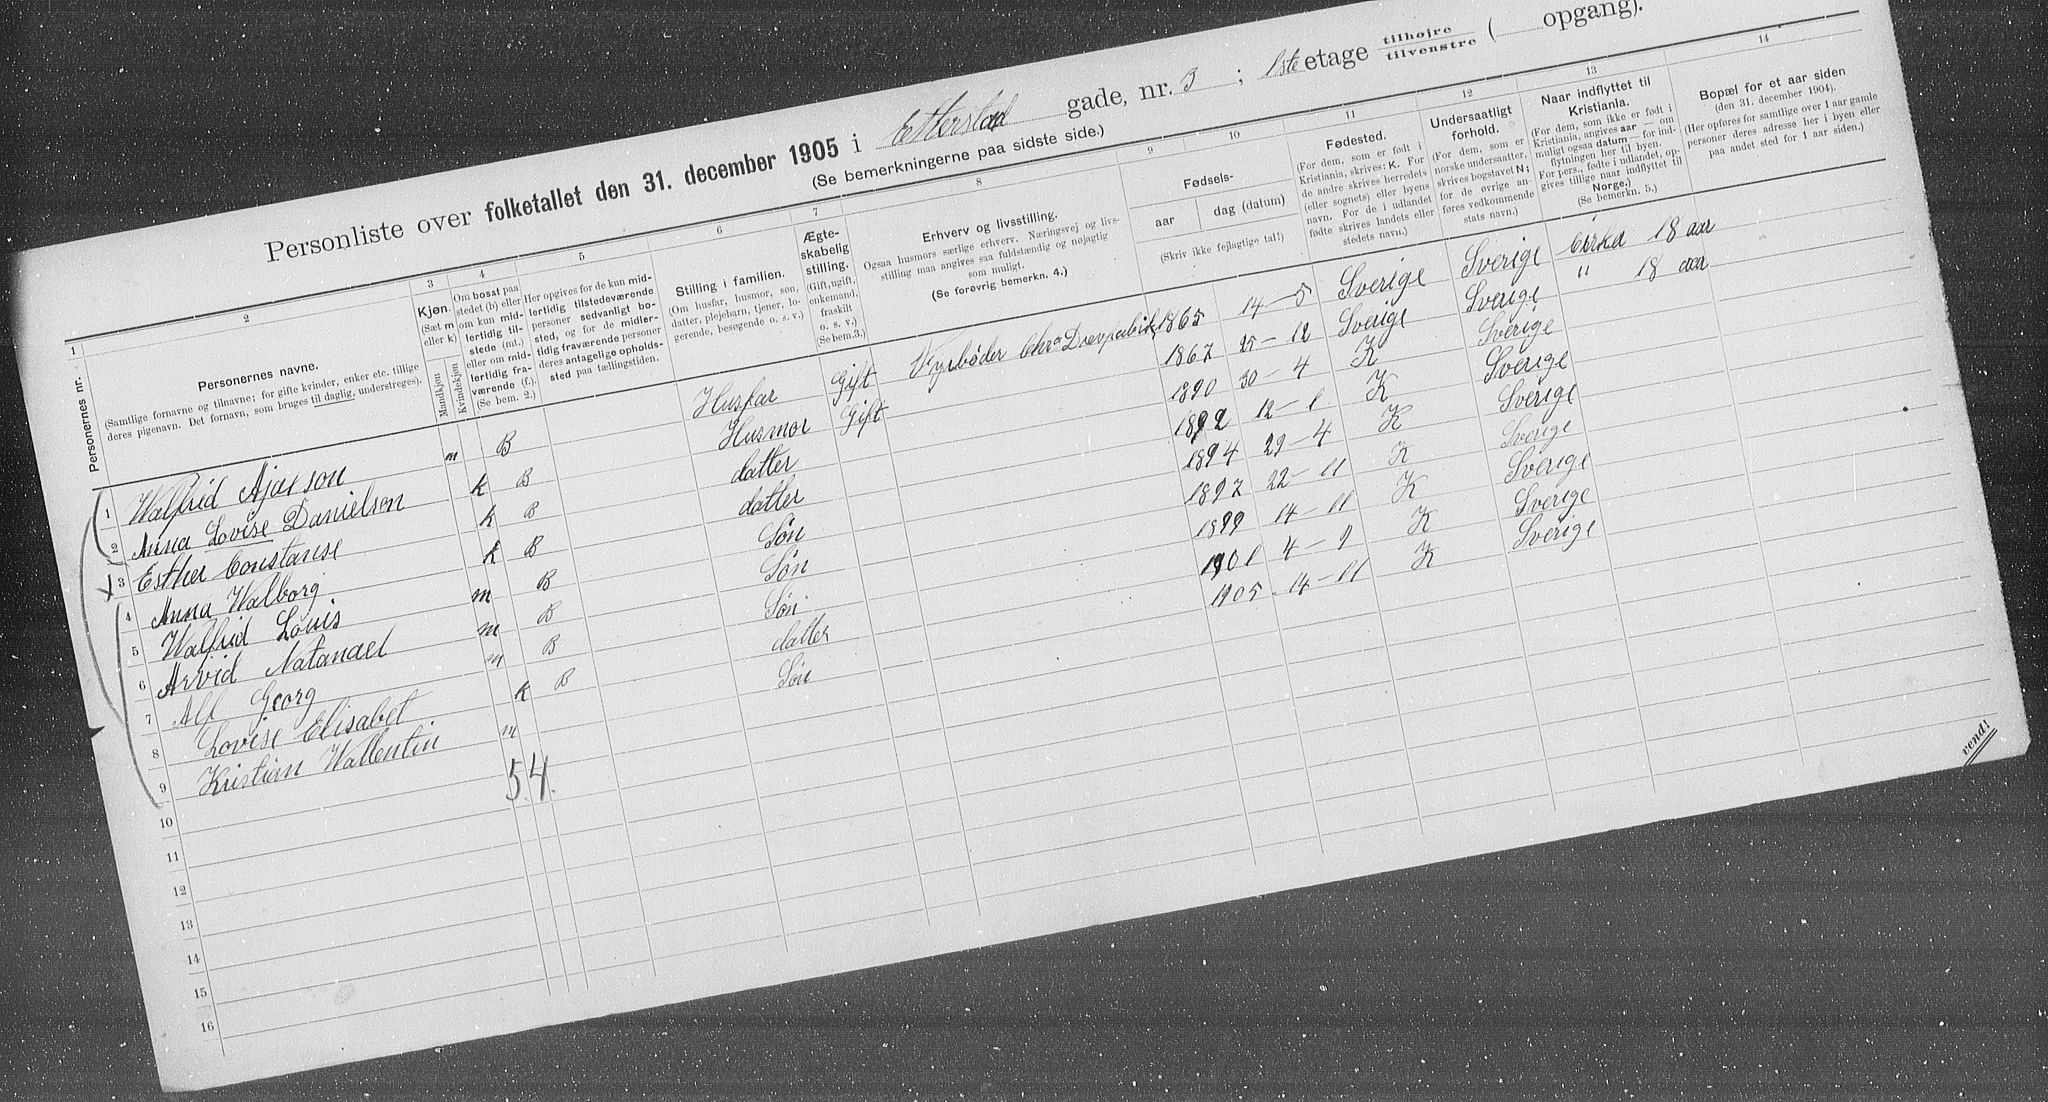 Personliste over folketallet den 31. december 1905 i Etterstad gade, nr. 3; 1ste etage tilhøjre / tilvenstre ( opgang).
(Se bemerkningerne paa sidste side.)
1 2 3 4 5 6 7 8 9 10 11 12 13 14
Personernes nr.
Personernes navne.
(Samtlige fornavne og tilnavne; for gifte kvinder, enker etc. tillige
deres pigenavn. Det fornavn, som bruges til daglig, understreges).
Kjøn.
(Sæt m
eller k)
Mandkjøn
Kvindekjøn
Om bosat paa
stedet (b) eller
om kun mid-
lertidig til-
stede (mt.)
eller om mid-
lertidig fra-
værende (f.).
(Se bem. 2.)
Her opgives for de kun mid-
lertidig tilstedeværende
personer sedvanligt bo-
sted, og for de midler-
tidig fraværende personer
deres antagelige opholds-
sted paa tællingstiden.
Stilling i familien.
(Om husfar, husmor, søn,
datter, plejebarn, tjener, lo-
gerende, besøgende o. s. v.)
Ægte-
skabelig
stilling.
(Gift, ugift,
enkemand,
fraskilt
o. s. v.)
(Se bem. 3.)
Erhverv og livsstilling.
Ogsaa husmors særlige erhverv. Næringsvej og livs-
stilling maa angives saa fuldstændig og nøjagtig
som muligt.
(Se forøvrig bemerkn. 4.)
Fødsels-
aar dag (datum)
(Skriv ikke fejlagtige tal!)
Fødested.
(For dem, som er født i
Kristiania, skrives: K. For
de andre skrives herredets
(eller sognets) eller byens
navn. For de i udlandet
fødte skrives landets eller
stedets navn.)
Undersaatligt
forhold.
(For dem, som er
norske undersaatter,
skrives bogstavet N;
for de øvrige an-
føres vedkommende
stats navn.)
Naar indflyttet til
Kristiania.
(For dem, som ikke er født i
Kristiania, angives aar — om
muligt ogsaa datum — for ind-
flytningen her til byen.
For pers., fødte i udlandet, op-
gives tillige naar indflyttet til
Norge.)
(Se bemerkn. 5.)
Bopæl for et aar siden
(den 31. december 1904).
(Her opføres for samtlige over 1 aar gamle
personer deres adresse her i byen eller
paa andet sted for 1 aar siden.)
1 Walfrid m B Husfar Gift Fyrbøder 1865 14 – 5 Sverige Sverige Cirka 18 aar
2 Anna Lovise Danielson k B Husmor Gift 1867 25 – 12 Sverige Sverige " 18 aar
3 Esther Constanse k B datter 1890 30 – 4 K Sverige
4 Anna Walborg k B datter 1892 12 – 1 K Sverige
5 Walfrid Louis m B Søn 1894 29 – 4 K Sverige
6 Arvid Natanael m B Søn 1897 22 – 11 K Sverige
7 Alf Georg m B Søn 1899 14 – 11 K Sverige
8 Lovise Elisabet k B datter 1901 4 – 9 K Sverige
9 Kristian Wallentin m Søn 1905 14 – 11 K Sverige
10 5.4.
11
12
13
14
15
16
vend!